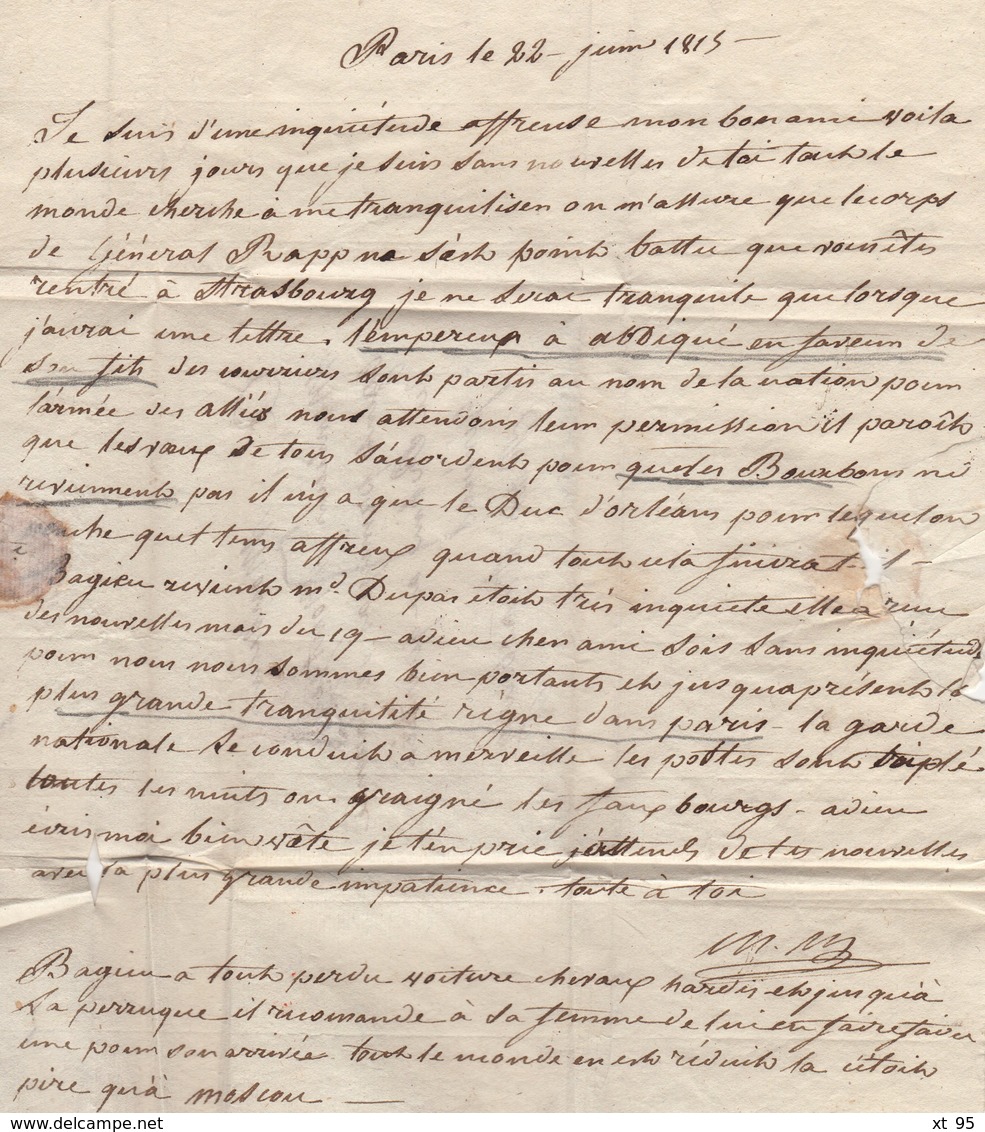 Paris le 22 - juin 1815 -
Je suis d'une inquiétude affreuse mon bon ami voila
plusieurs jours que je suis sans nouvelles de toi tout le
monde cherche a me tranquiliser on m'assure que le corps
de Général Rapp ne s'est point battu que vous êtes
rentré à Strasbourg je ne serai tranquile que lorsque
j'aurai une lettre. l'empereur à abdiqué en faveur de
son fils des courriers sont partis au nom de la nation pour
l'armée des alliés nous attendons leur permission il paroît
que les vœux de tous s'acordent pour que les Bourbons ne
reviennent pas il n'y a que le Duc d'orléans pour lequel on
penche quel tems affreux quand tout cela finira t-il -
Bagieu revient md. Dupas étoit très inquiete elle a reçu
des nouvelles mais du 19 - adieu cher ami sois sans inquiétude
pour nous nous sommes bien portants et jusqu'aprésent la
plus grande tranquilité règne dans paris - la garde
nationale se conduit a merveille les postes sont triplé
toutes les nuits on craigné les faux bourgs - adieu
écris moi bien vîte je t'en prie j'attends de tes nouvelles
avec la plus grande impatience. toute à toi
M. M
Bagieu a tout perdu voiture chevaux hardes et jusqu'à
sa perruque il recomande à sa femme de lui en faire faire
une pour son arrivée tout le monde en est réduit la c'étoit
pire qu'à moscou -
xt 95
www.delcampe.net